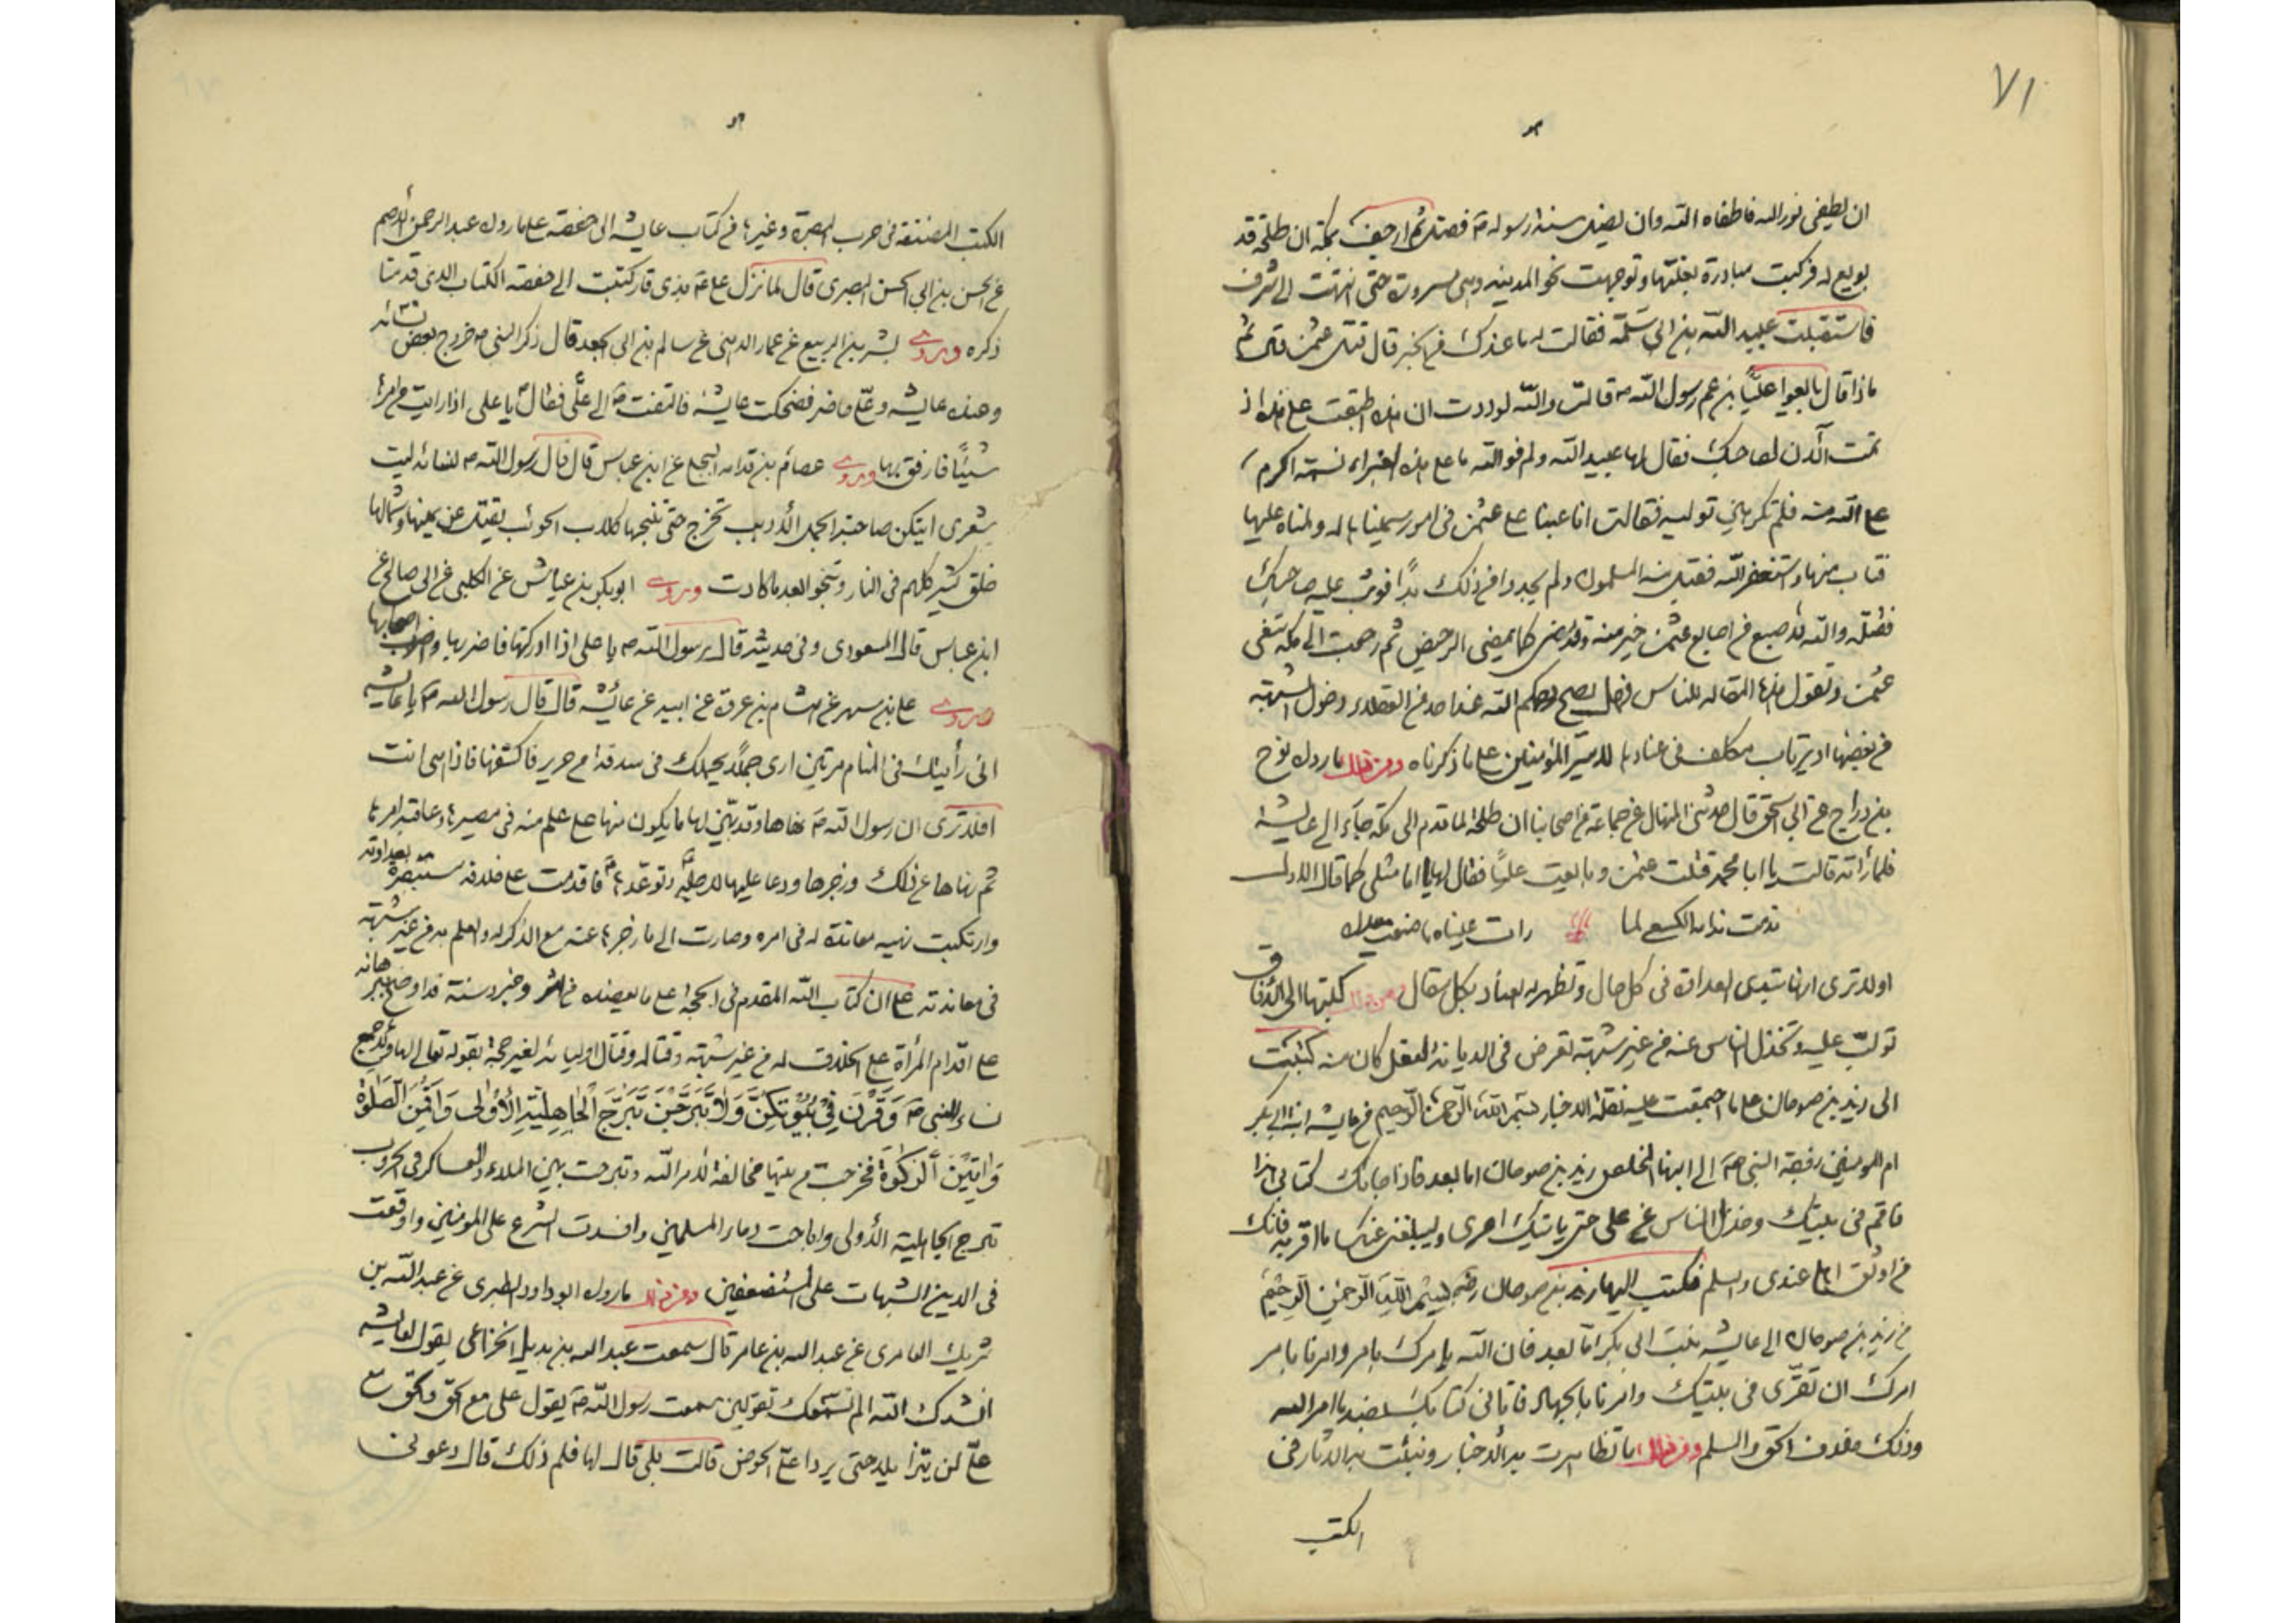 ٧١
ان يطفى نور الله فاطفاه الله وان يضل سنة رسوله ص فضل ثم ارجف بمكة ان طلحة قد
بويع له فركبت مبادرة بغلتها وتوجهت نحو المدينة وهى مسرورة حتى انتهت الى سرف
فاستقبلت عبيد الله بن ابى سلمة فقالت له ما عندك من الخبر قال قتل عثمن قالت ثم
ماذا قال بايعوا عليًّا بن عم رسول الله ص قالت والله لوددت ان هذه اطبقت على هذه اذ
تمت الآن لصاحبك فقال لها عبيد الله ولم فوالله ما على هذه الغبراء نسمة اكرم
على الله منه فلم تكرهين توليه فقالت انا عبنا على عثمن فى امور سميناها له ولمناه عليها
فتاب منها واستغفر الله فقبل منه المسلمون ولم يجدوا من ذلك بدًّا فوثب عليه صاحبك
فقتله والله لاصبع من اصابع عثمن خير منه وقد مضى كما يمضى الرحيض ثم رجعت الى مكة تنعى
عثمن وتقول هذه المقالة للناس فهل يصح بحكم الله عند احد من العقلاء دخول شبهة
من بعضها او يرتاب مكلف فى عنادها لامير المؤمنين على ما ذكرناه ومن ذلك ما رواه نوح
بن دراج عن ابى اسحق قال حدثنى المنهال عن جماعة من اصحابنا ان طلحة لما قدم الى مكة جآء الى عايشة
فلما رأته قالت يا ابا محمد قتلت عثمن وبايعت عليًّا فقال لها يا اما مثلى كما قال الاول
ندمت ندامة الكسعى لما رات عيناه ما صنعت يداه
اولا ترى انها تبتدى العداوة فى كل حال وتظهر له العناد بكل مقال ومن ذلك كتبها الى الآفاق
تولب عليه وتخذل الناس عنه من غير شبهة تعرض فى الديانة لعقل كان منه كتبت
الى زيد بن صوحان على ما اجتمعت عليه نقلة الاخبار بسم الله الرحمن الرحيم من عايشة ابنة ابى بكر
ام المومنين زوجة النبى ص الى ابنها المخلص زيد بن صوحان اما بعد فاذا جاءك كتابى هذا
فاقم فى بيتك وخذل الناس عن على حتى ياتيك امرى وليبلغنى عنك ما اقر به فانك
من اوثق اهلى عندى والسلم فكتب اليها زيد بن صوحان رضه بسم الله الرحمن الرحيم
من زيد بن صوحان الى عايشة بنت ابى بكر امّا بعد فان الله يامرك بامر وامرنا بامر
امرك ان تقرّى فى بيتك وامرنا بالجهاد فاتانى كتابك بضد ما امر الله
وذلك خلاف الحق والسلم ومن ذلك ما تظاهرت به الاخبار ونبئت به الاثار فى
الكتب
الكتب المصنفة فى حرب البصرة وغيرها من كتاب عايشة الى حفصة على ما رواه عبد الرحمن الاصم
عن الحسن بن ابى الحسن البصرى قال لما نزل على ع بذى قار كتبت الى حفصة الكتاب الذى قدمنا
ذكره وروى بشر بن الربيع عن عمار الدهنى عن سالم بن ابى الجعد قال ذكر النبى ص خروج بعض نسائه
وعنده عايشة وعلىّ حاضر فضحكت عايشة فالتفت ص الى علىّ فقال يا على اذا رايت من امرها
شيئًا فارفق بها وروى عصام بن قدامة البجلى عن ابن عباس قال قال رسول الله ص لنسائه ليت
شعرى ايتكن صاحبة الجمل الأدبب تخرج حتى تنبحها كلاب الحوئب يقتل عن يمينها وشمالها
خلق كثير كلهم فى النار وتنجو بعد ما كادت وروى ابو بكر بن عياش عن الكلبى عن ابى صالح عن
ابن عباس قال المسعودى وفى حديثه قال رسول الله ص يا على اذا ادركتها فاضربها واضرب اصحابها
وروى على بن مسهر عن هشام بن عروة عن ابيه عن عائشة قال قال رسول الله ص يا عايشة
انى رأيتك فى المنام مرتين ارى جملًا يحملك فى سدفة من حرير فاكشفها فاذا هى انت
افلا ترى ان رسول الله ص نهاها وقد بيّن لها ما يكون منها على علم منه فى مصيرها وعاقبة امرها
ثم نهاها عن ذلك وزجرها ودعا عليها لاجله وتوعدها فاقدمت على خلافه مستبصرة بعداوته
وارتكبت نهيه معاندة له فى امره وصارت الى ما زجرها عنه مع الذكر له والعلم به من غير شبهة
فى معاندته على ان كتاب الله المقدم فى الحجة على ما يعضده من اثر وخبر وسنة قد اوضح ببرهانه
على اقدام المرأة على الخلاف له من غير شبهة وقتاله وقتال اوليائه لغير حجة بقوله تعالى لها ولجميع
نساء النبى ص وَقَرْنَ فِي بُيُوتِكُنَّ وَلَا تَبَرَّجْنَ تَبَرُّجَ الْجَاهِلِيَّةِ الْأُولَى وَأَقِمْنَ الصَّلَوةَ
وَآتِينَ الزَّكَوةَ فخرجت من بيتها مخالفة لأمر الله وتبرجت بين الملاء والعساكر فى الحروب
تبرج الجاهلية الأولى واباحت دماء المسلمين وافسدت الشرع على المومنين واوقعت
فى الدين الشبهات على المستضعفين ومن ذلك ما رواه ابو داود الطبرى عن عبد الله بن
شريك العامرى عن عبد الله بن عامر قال سمعت عبد الله بن بديل الخزاعى يقول لعايشة
انشدك الله الم نسمعك تقولين سمعت رسول الله ص يقول على مع الحق والحق مع
علىّ لن يتزايلا حتى يردا علىّ الحوض قالت بلى قال لها فلم ذلك قال دعونى